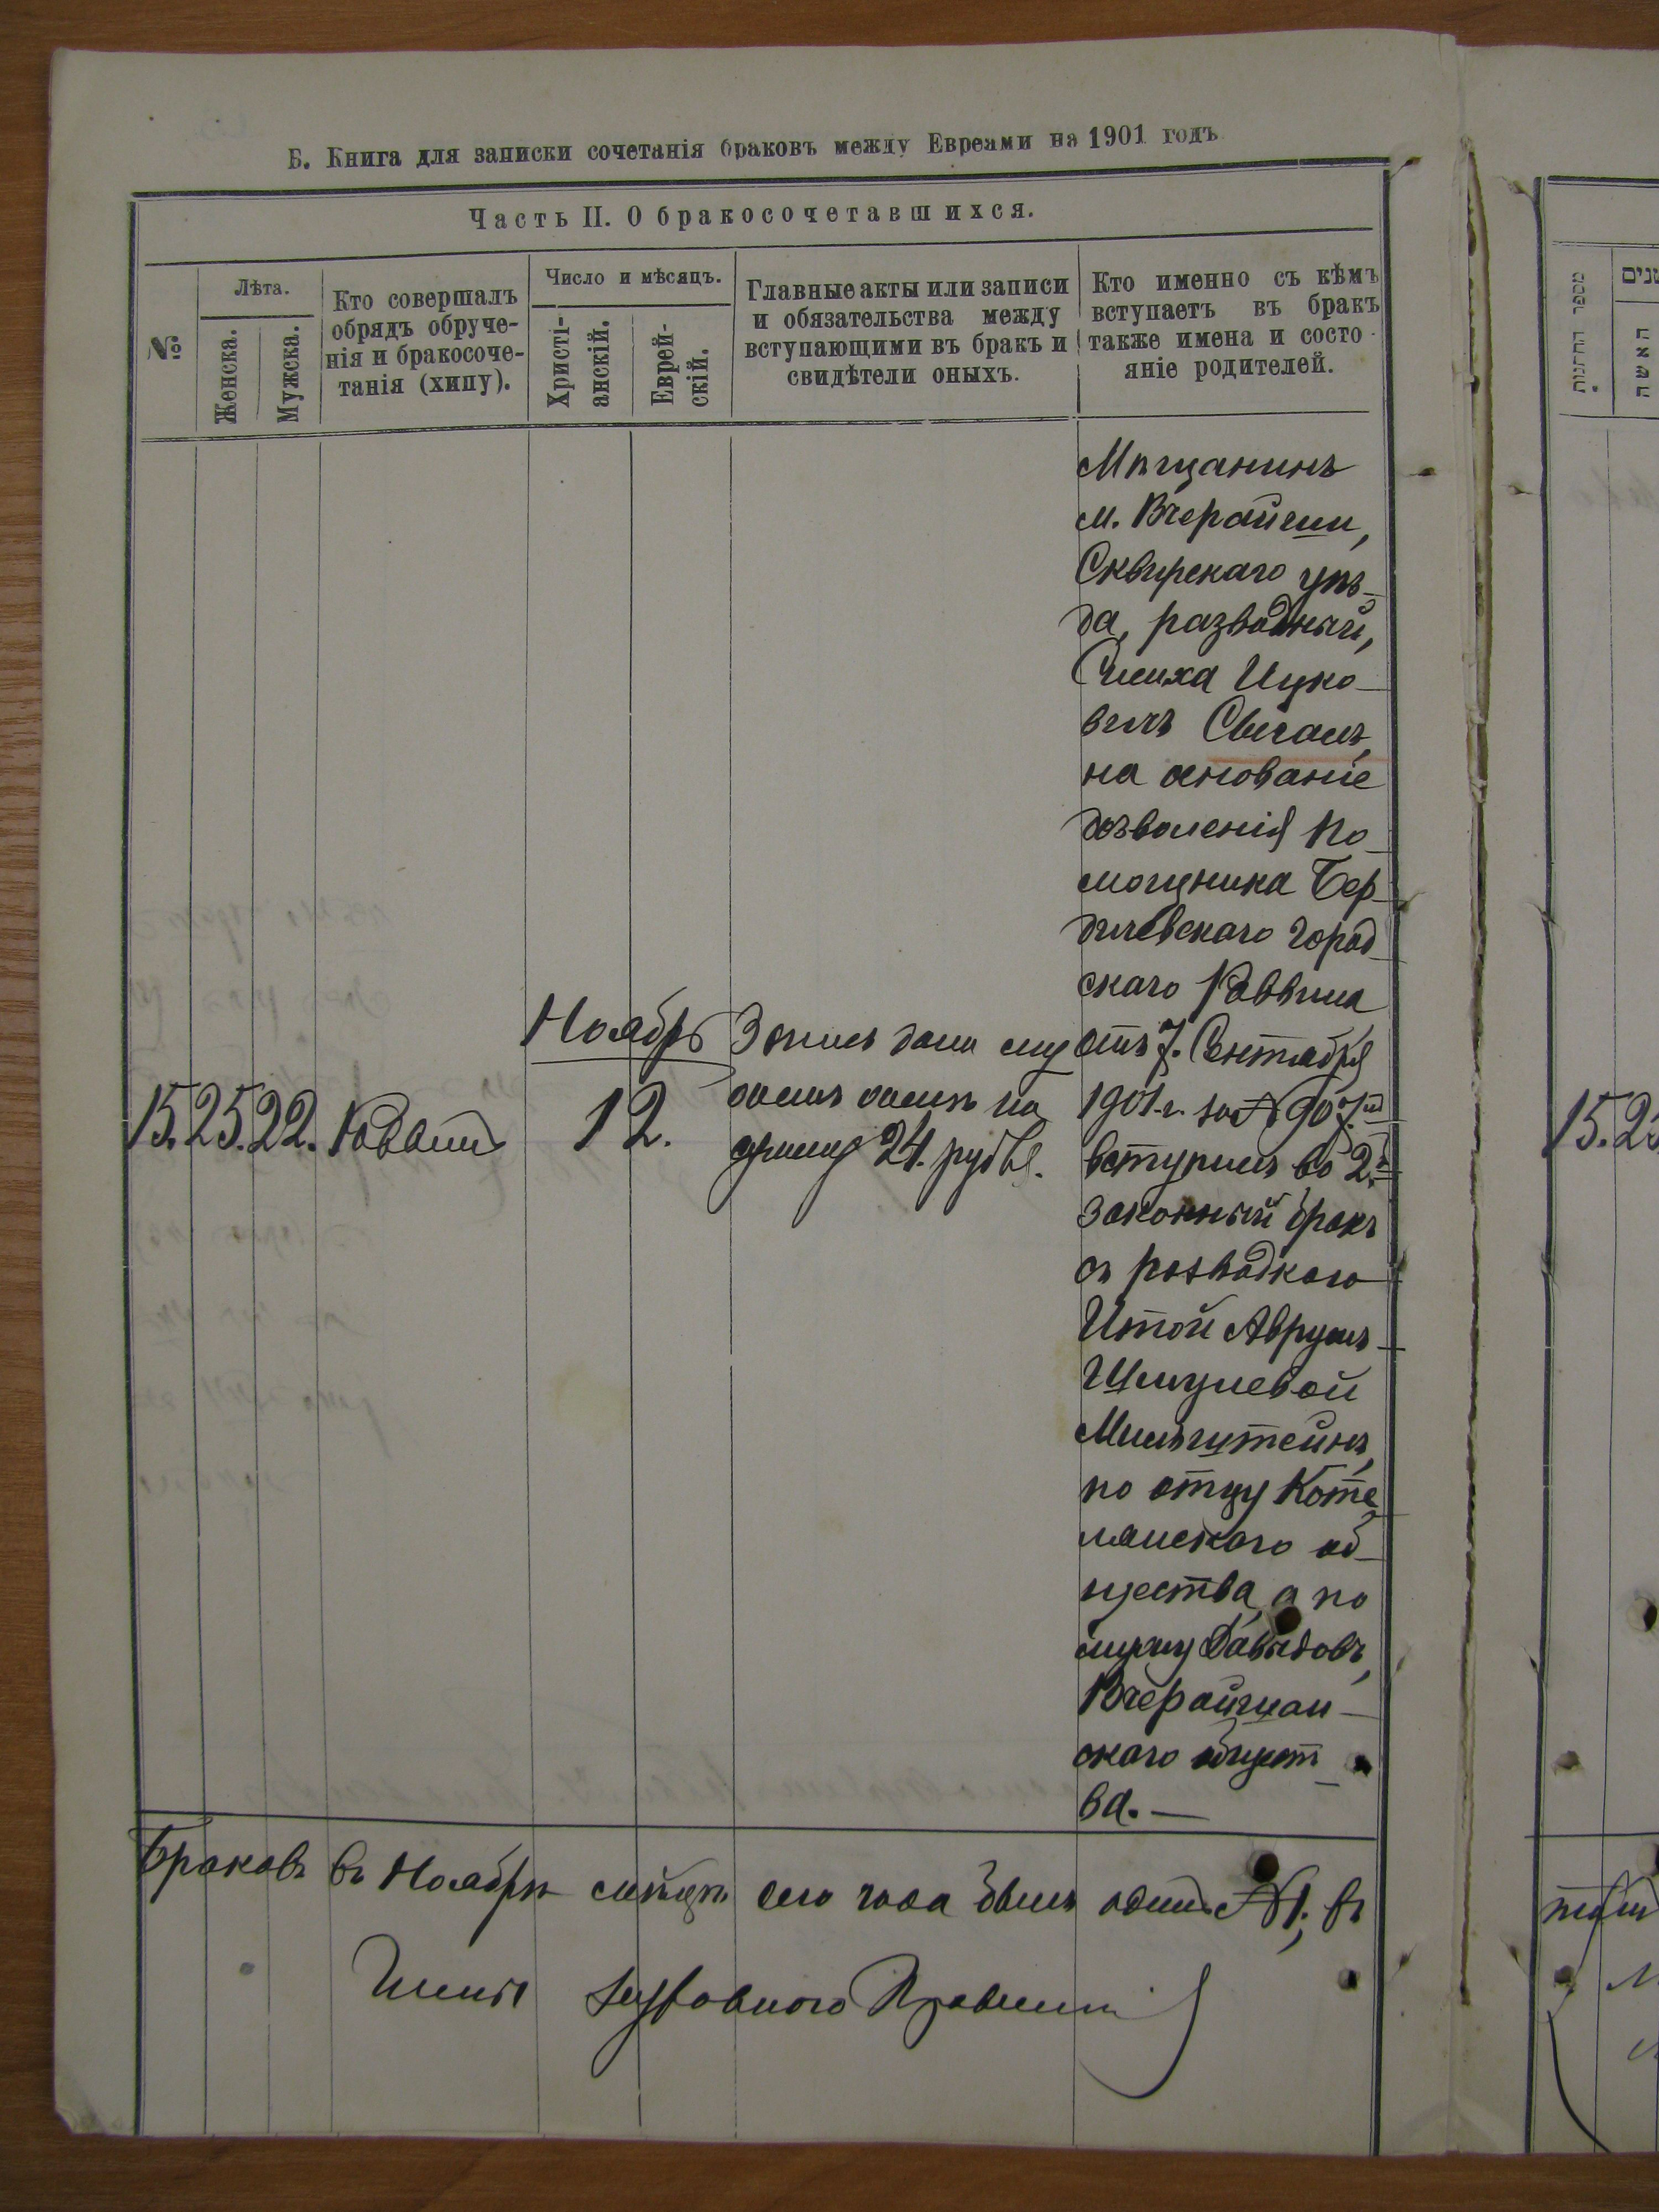 Б. Книга для записки сочетанія браковъ между Евреями на 1901 годъ
Часть II. О бракосочетавшихся.
№
Лѣта.
Женска.
Мужска.
Кто совершалъ
обрядъ обруче-
нія и бракосоче-
танія (хипу).
Число и мѣсяцъ.
Христі-
анскій.
Еврей-
скій.
Главные акты или записи
и обязательства между
вступающими въ бракъ и
свидѣтели оныхъ.
Кто именно съ кѣмъ
вступаетъ въ бракъ
также имена и состо-
яніе родителей.
15. 25. 22. Раввинъ
Ноябрь
12.
Запись дана
на
сумму 24. рубля.
Мѣщанинъ
м. Вчерайши,
Сквирскаго уѣз-
да, разводный,
Симха Ицко-
вичъ Свичаръ,
на основаніе
дозволенія По-
мощника Бер-
дичевскаго город-
скаго Раввина
отъ 7. Сентября
1901 г. за № 907.
вступилъ во 2й
законный бракъ
съ разводкою
Итой Аврумъ-
Шмулевой
Мильштейнъ,
по отцу Коте-
лянскаго об-
щества, а по
мужу Давыдовъ,
Вчерайшан-
скаго общест-
ва. —
Браковъ въ Ноябрѣ мѣсяцѣ сего года былъ одинъ № 1, въ
Духовнаго Правленія
מספר החתונות
האשה
15. 25